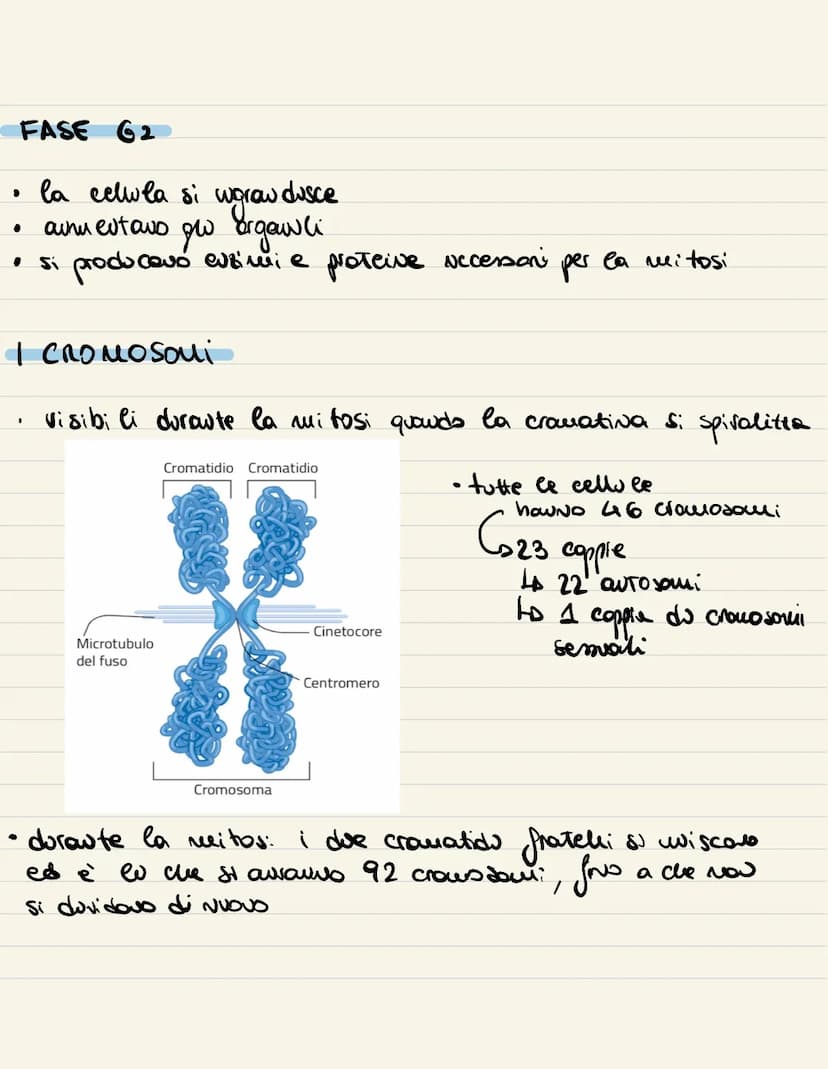 FASE G2
• la cellula si ingrandisce
• aumentano gli organuli
• si producono enzimi e proteine necessari per la mitosi
I CROMOSOMI
• visibili durante la mitosi quando la cromatina si spiralizza
Cromatidio Cromatidio
Microtubulo
del fuso
Cinetocore
Centromero
Cromosoma
• tutte le cellule
hanno 46 cromosomi
↳ 23 coppie
↳ 22 autosomi
↳ 1 coppia di cromosomi
sessuali
• durante la mitosi i due cromatidi fratelli si uniscono
ed è lì che si avranno 92 cromosomi, fino a che non
si dividono di nuovo